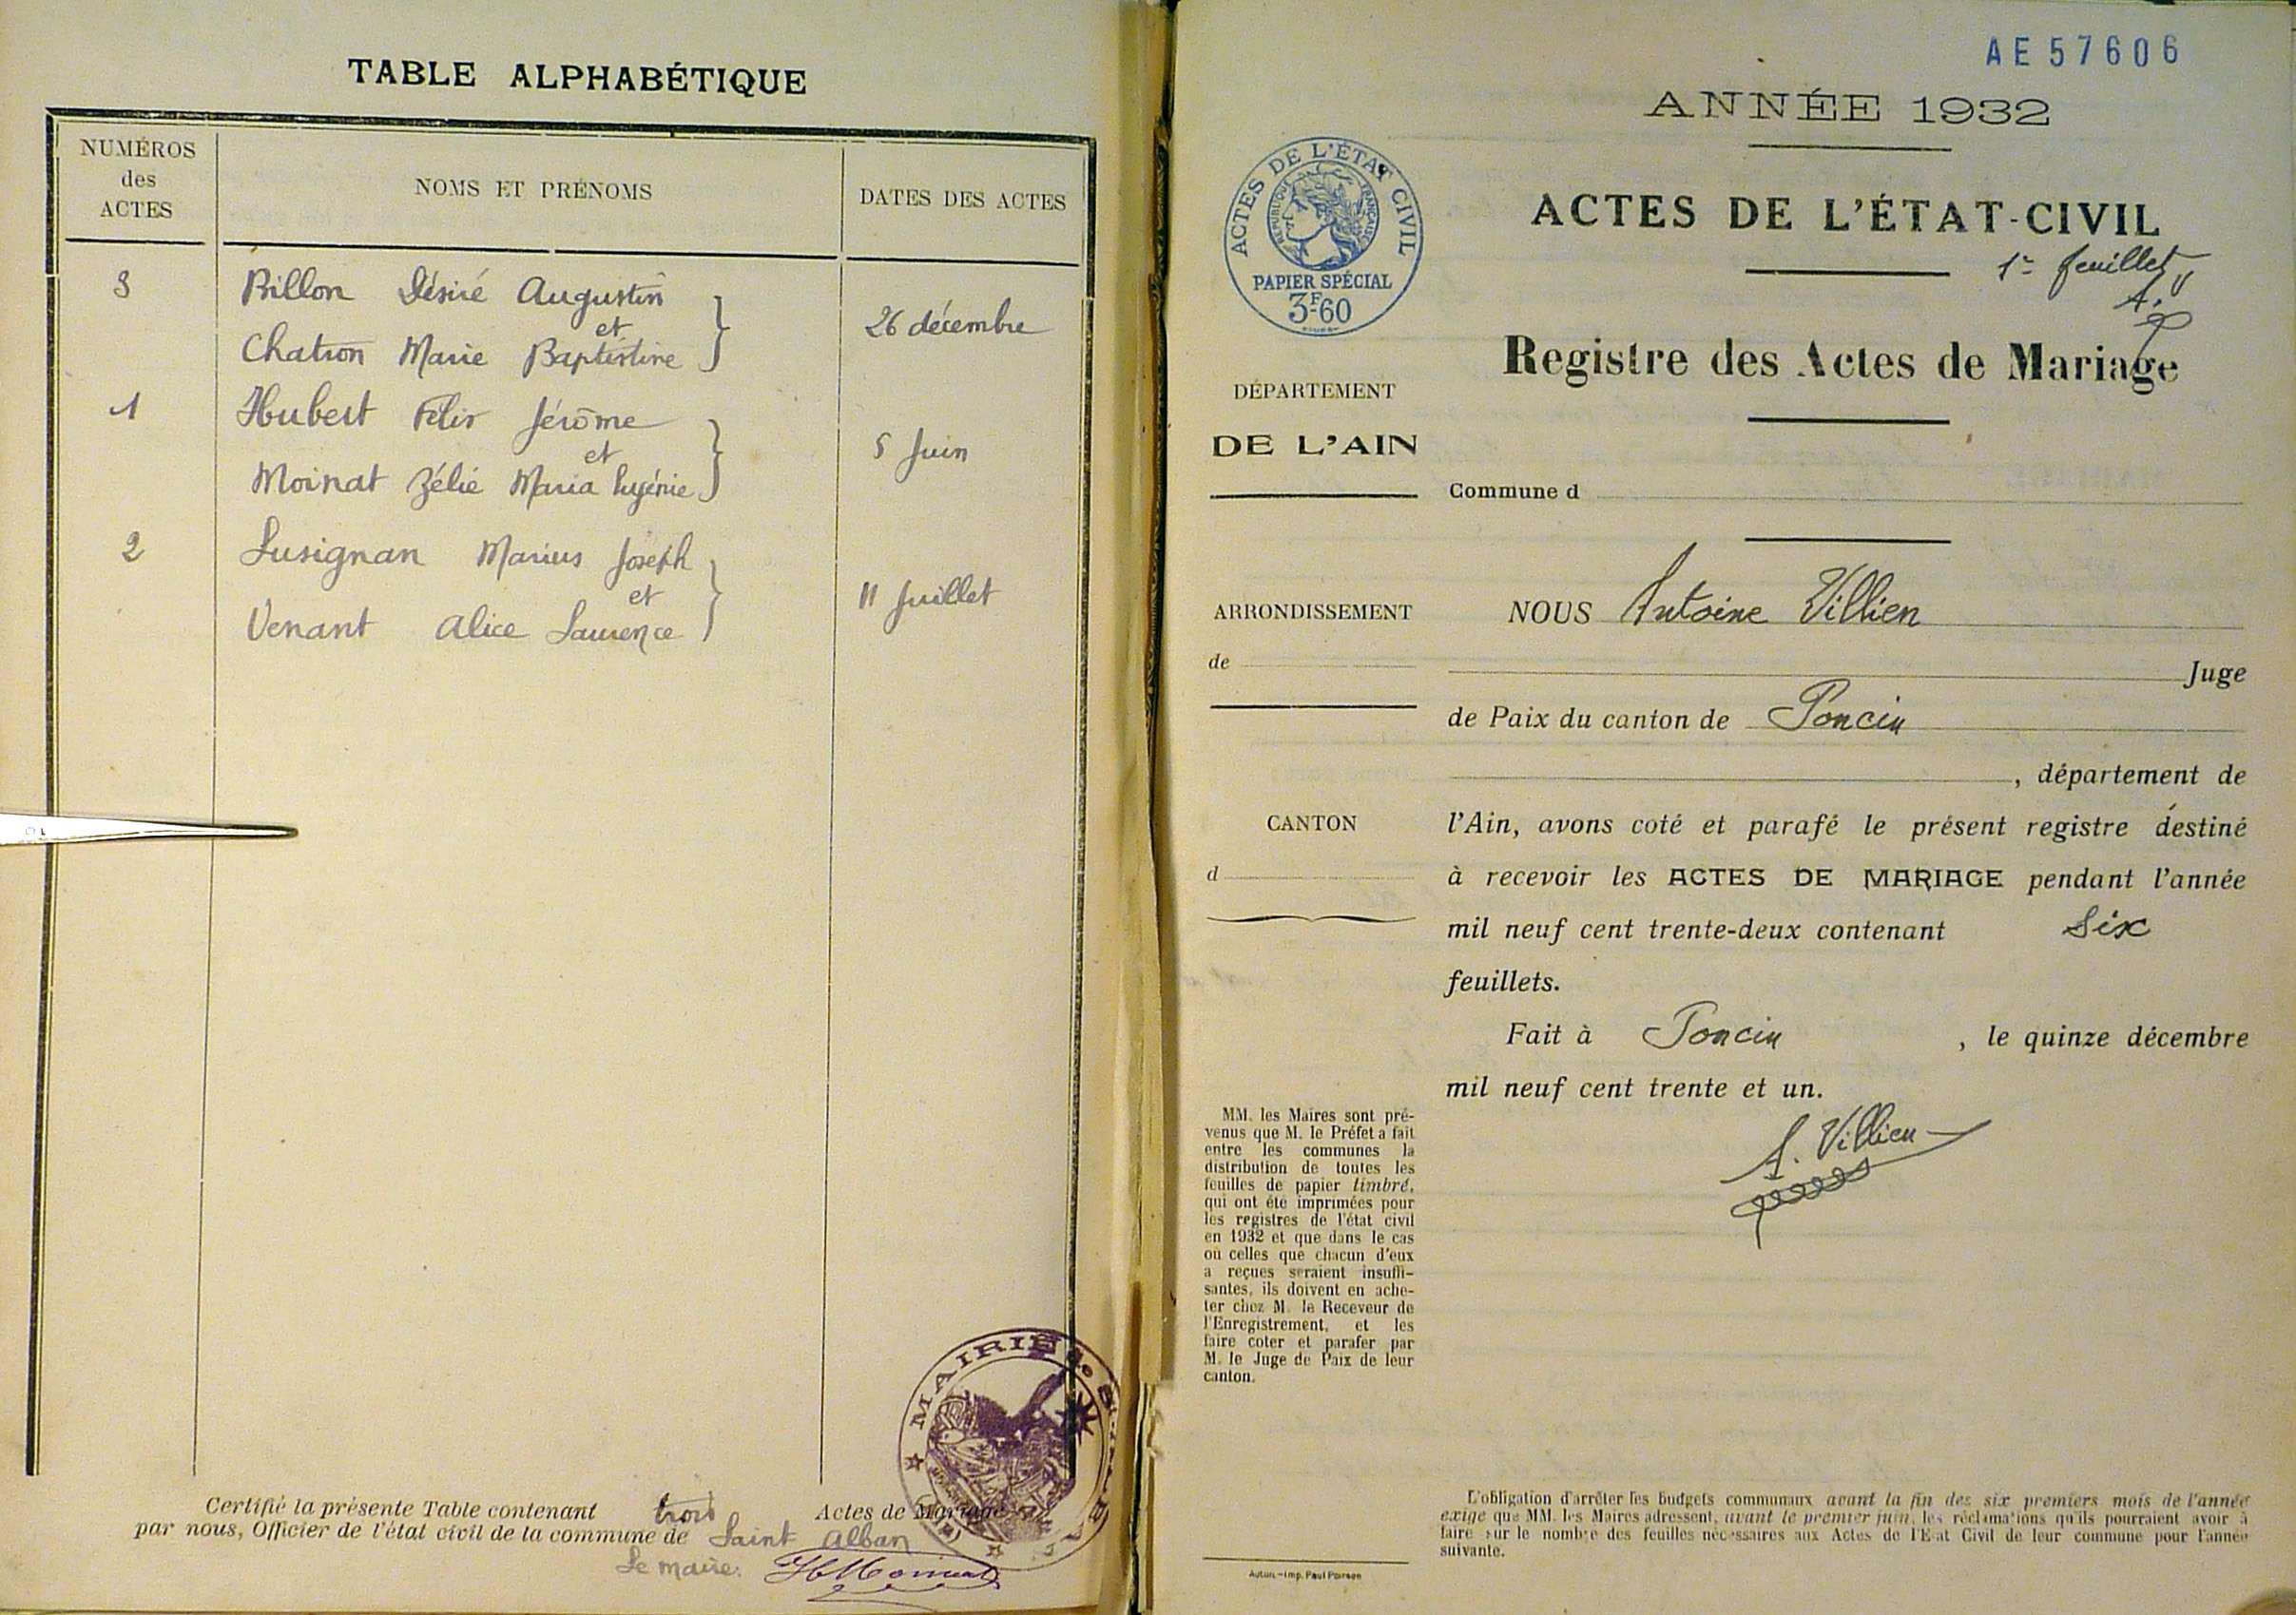 TABLE ALPHABÉTIQUE
NUMÉROS
des
ACTES
NOMS ET PRÉNOMS
DATES DES ACTES
3
Billon Désiré Augustin
et
Chatron Marie Baptistine
26 décembre
1
Hubert Félix Jérôme
et
Moinat Zélie Maria Eugénie
5 Juin
2
Lusignan Marius Joseph
et
Venant Alice Laurence
11 Juillet
Certifié la présente Table contenant trois Actes de Mariage
par nous, Officier de l'état civil de la commune de Saint Alban
Le maire:
MAIRIE
AE57606
ANNÉE 1932
ACTES DE L'ÉTAT CIVIL
RÉPUBLIQUE FRANÇAISE
PAPIER SPÉCIAL
3F60
ACTES DE L'ÉTAT-CIVIL
1er feuillet
A. V
Registre des Actes de Mariage
DÉPARTEMENT
DE L'AIN
Commune d
ARRONDISSEMENT
de
CANTON
d
NOUS Antoine Villien
Juge
de Paix du canton de Poncin
, département de
l'Ain, avons coté et parafé le présent registre destiné
à recevoir les ACTES DE MARIAGE pendant l'année
mil neuf cent trente-deux contenant Six
feuillets.
Fait à Poncin , le quinze décembre
mil neuf cent trente et un.
A. Villien
MM. les Maires sont pré-
venus que M. le Préfet a fait
entre les communes la
distribution de toutes les
feuilles de papier timbré,
qui ont été imprimées pour
les registres de l'état civil
en 1932 et que dans le cas
où celles que chacun d'eux
a reçues seraient insuffi-
santes, ils doivent en ache-
ter chez M. le Receveur de
l'Enregistrement, et les
faire coter et parafer par
M. le Juge de Paix de leur
canton.
L'obligation d'arrêter les budgets communaux avant la fin des six premiers mois de l'année
exige que MM. les Maires adressent, avant le premier juin, les réclamations qu'ils pourraient avoir à
faire sur le nombre des feuilles nécessaires aux Actes de l'Etat Civil de leur commune pour l'année
suivante.
Autun.-Imp. Paul Poirson